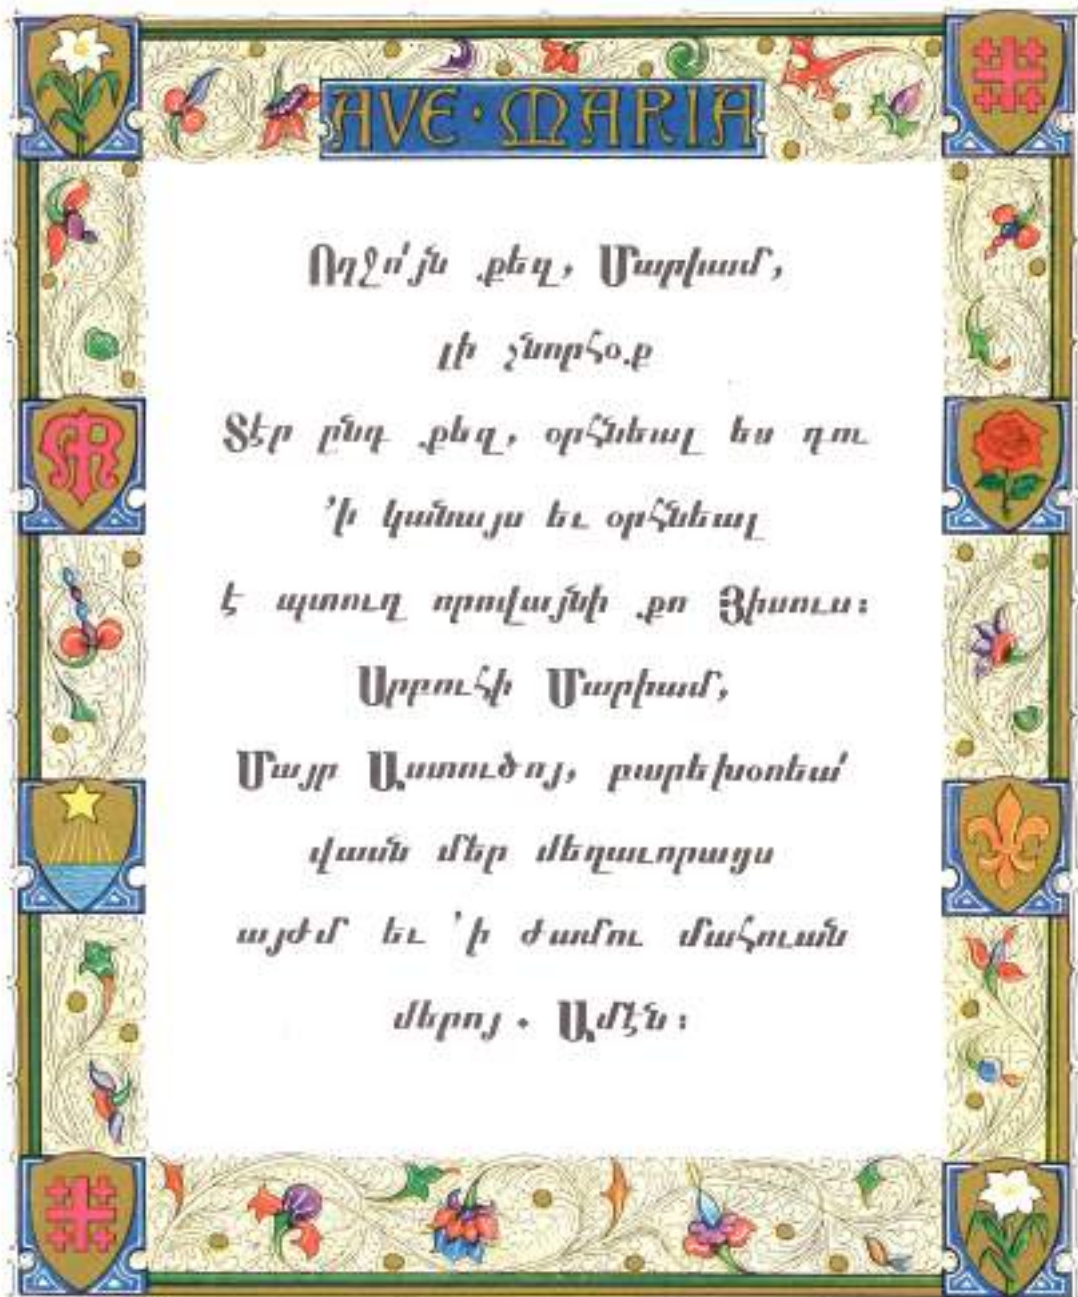 AVE · MARIA
Ողջո՛յն քեզ, Մարիամ,
լի շնորհօք
Տէր ընդ քեզ, օրհնեալ ես դու
՚ի կանայս եւ օրհնեալ
է պտուղ որովայնի քո Յիսուս։
Սրբուհի Մարիամ,
Մայր Աստուծոյ, բարեխօսեա՛
վասն մեր մեղաւորացս
այժմ եւ ՚ի ժամու մահուան
մերոյ. Ամէն։